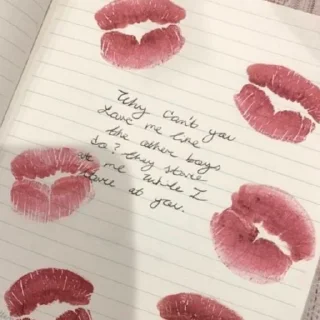 Why can't you
Love me like
the other boys
do? they stare
at me while I
stare at you.